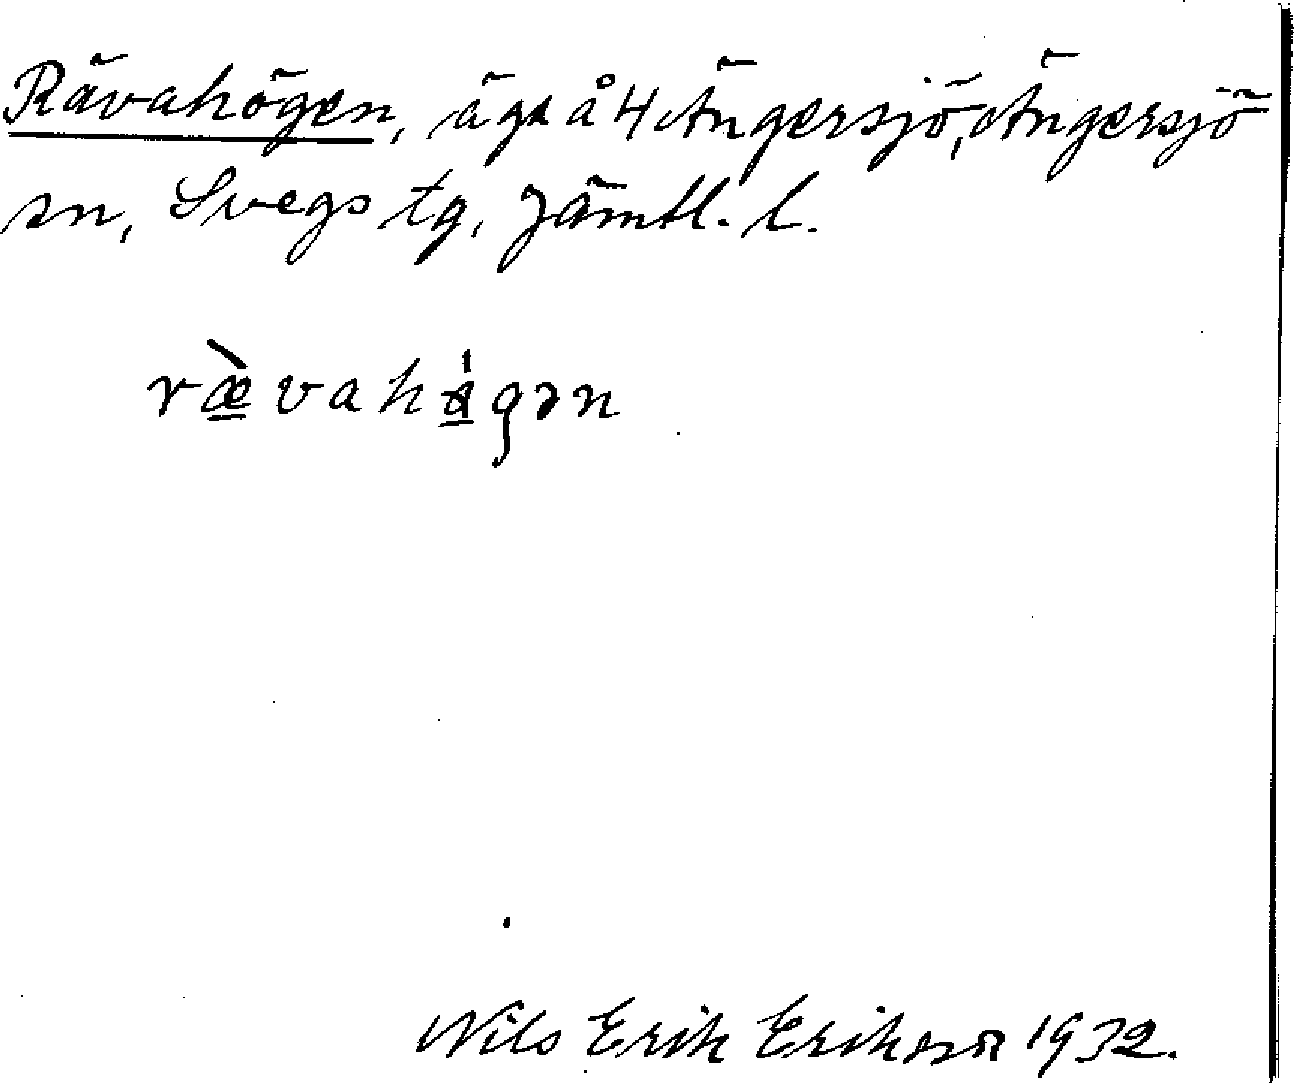 Rävahögen, äga å 4 Ängersjö, Ängersjö
sn, Svegs tg, Jämtl. l.
ræ̀vahǿgən
Nils Erik Eriksson 1932.